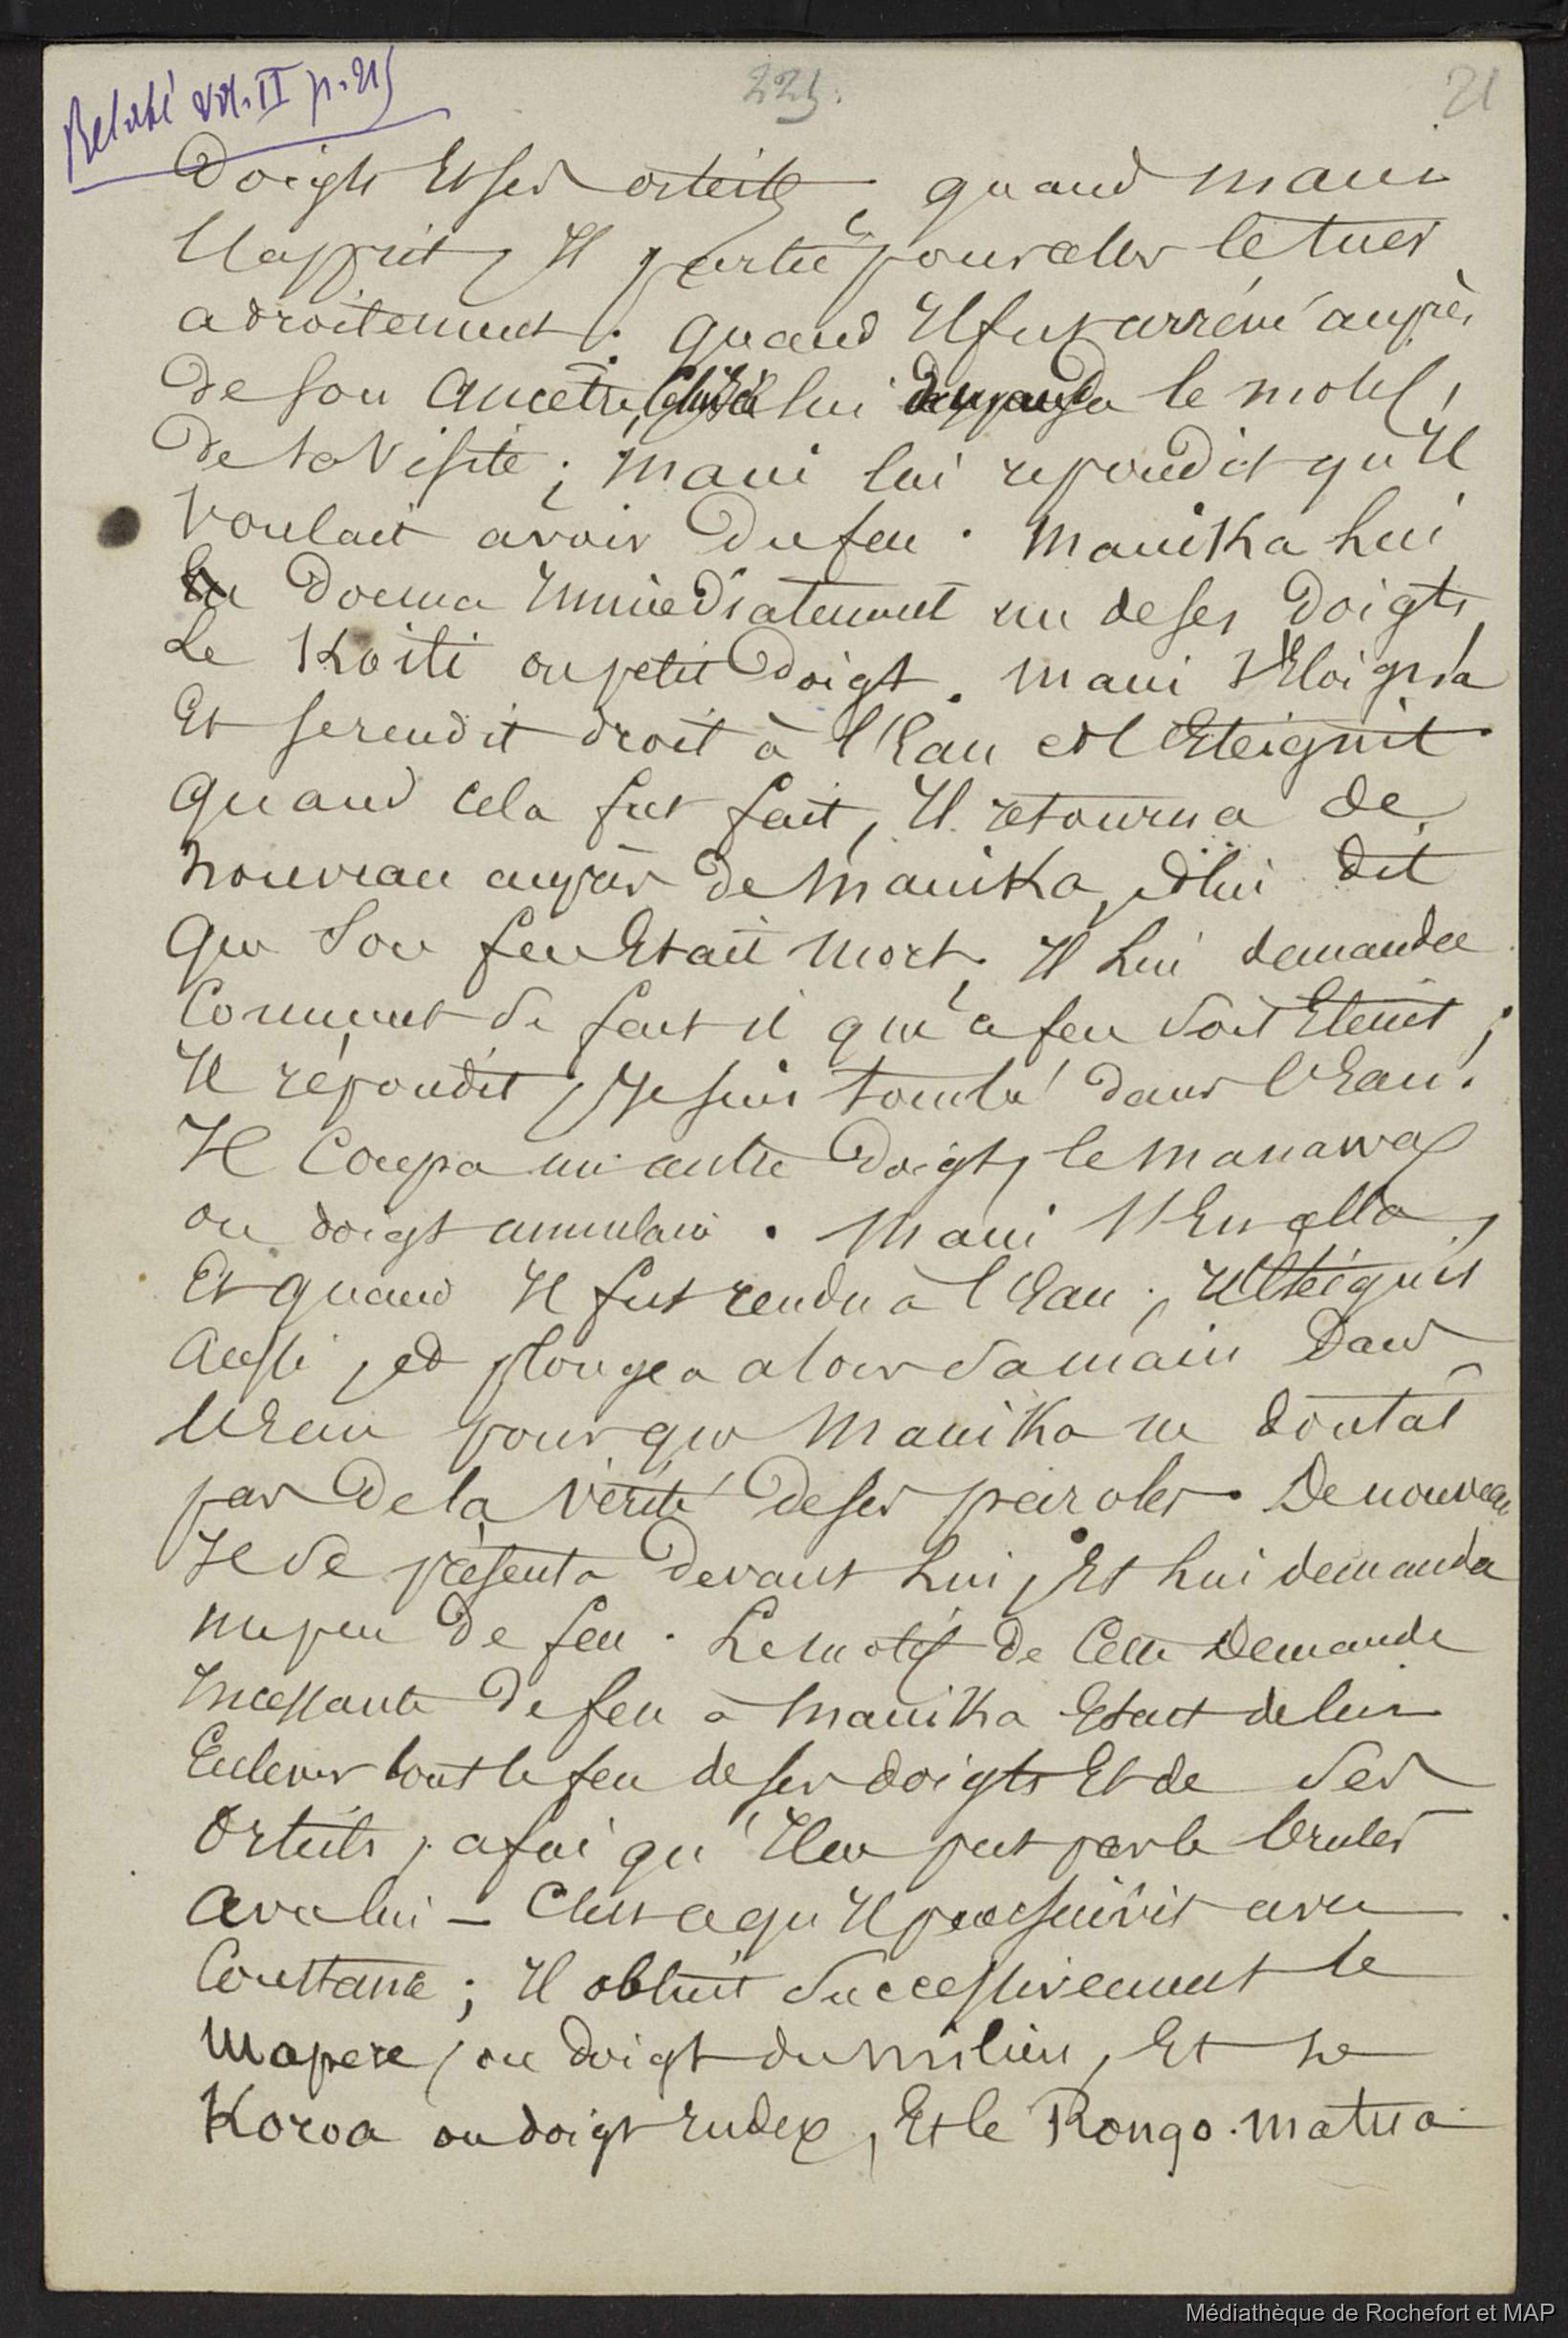 Relaté vol. II p. 215
225.
21
Doigts Et ses orteils, quand maui
l'apprit, Il partit pour aller le tuer
adroitement. quand Il fut arrivé auprès
de son ancêtre, lui demanda le motif
de sa Visite ; maui lui repondit qu'Il
Voulait avoir Du feu. Mauika Lui
En Donna Immédiatement un de ses Doigts
Le Koiti ou petit Doigt. maui s'Eloigna
Et se rendit droit à l'Eau et l'Eteignit
quand cela fut fait, Il retourna de
nouveau auprès de Mauika, et lui dit
que Son feu Etait Mort, Il Lui demanda
Comment se fait il que ce feu soit Eteint ;
Il répondit, Je suis tombé dans l'Eau.
Il Coupa un autre Doigt, le Manawa
ou doigt annulaire. Maui s'En alla,
Et quand Il fut rendu à l'Eau, Il l'Eteignit
Aussi, et plongea alors sa main Dans
l'Eau pour que Mauika ne doutât
pas De la Vérité de ses paroles. De nouveau
Il se présenta Devant Lui, Et Lui demanda
un peu De feu. Le motif de Cette Demande
Incessante De feu à Mauika Etait de lui
Enlever tout le feu de ses doigts Et de ses
Orteils, afin qu'Il ne put pas le bruler
Avec lui — C'est ce qu'Il poursuivit avec
Constance ; Il obtint Successivement le
Mapere, ou Doigt du milieu, Et le
Koroa ou doigt Index, Et le Rongo. matua
Médiathèque de Rochefort et MAP